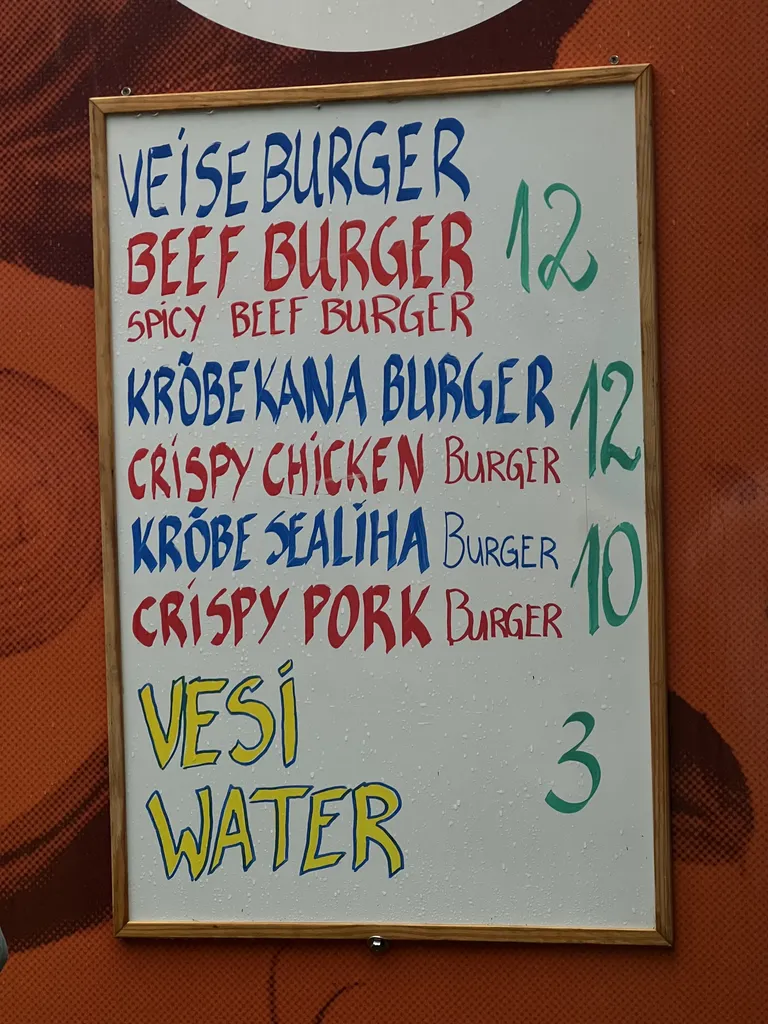 VEISEBURGER
BEEF BURGER 12
SPICY BEEF BURGER
KRÕBEKANA BURGER 12
CRISPY CHICKEN BURGER
KRÕBE SEALIHA BURGER 10
CRISPY PORK BURGER
VESI
WATER 3